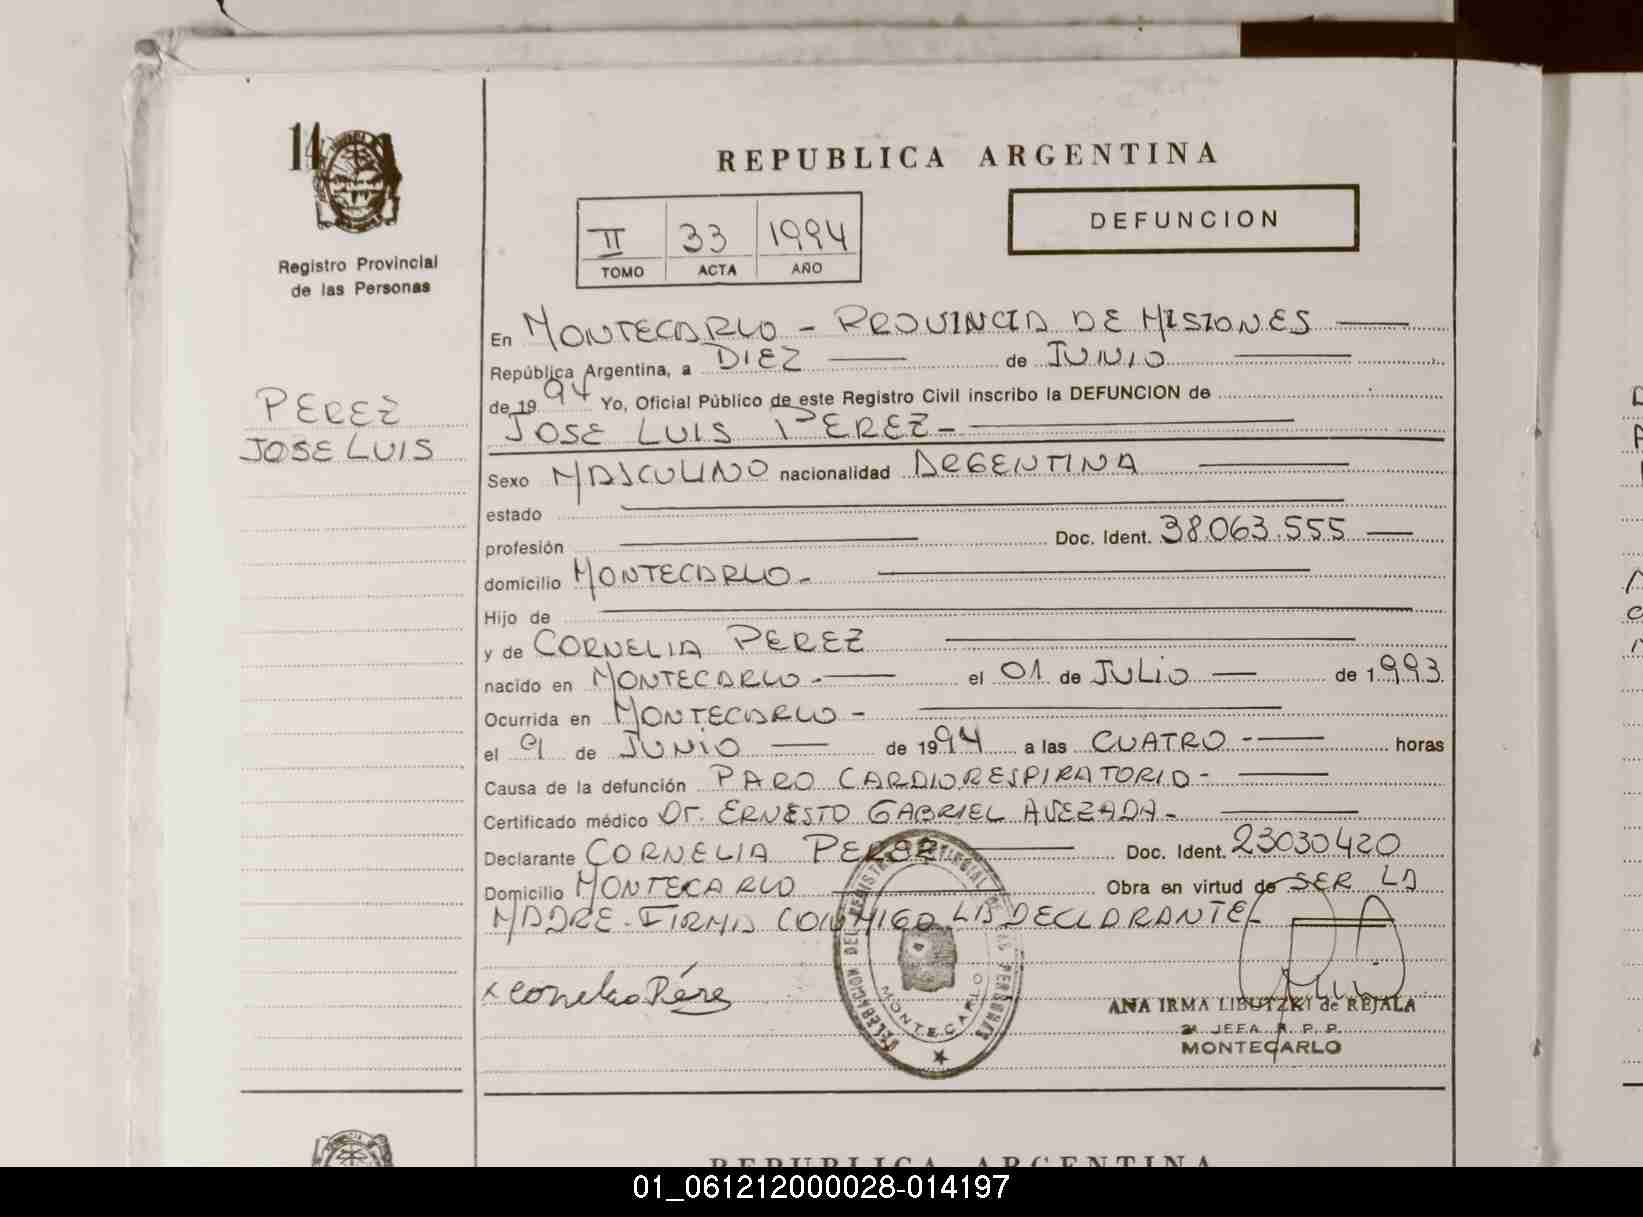 14
Registro Provincial
de las Personas
REPUBLICA ARGENTINA
II 33 1994
TOMO ACTA AÑO
DEFUNCION
PEREZ
JOSE LUIS
En MONTECARLO - PROVINCIA DE MISIONES
República Argentina, a DIEZ de JUNIO
de 1994 Yo, Oficial Público de este Registro Civil inscribo la DEFUNCION de
JOSE LUIS PEREZ-
Sexo MASCULINO nacionalidad ARGENTINA
estado
profesión Doc. Ident. 38.063.555
domicilio MONTECARLO-
Hijo de
y de CORNELIA PEREZ
nacido en MONTECARLO- el 01 de JULIO de 1993.
Ocurrida en MONTECARLO-
el de JUNIO de 1994 a las CUATRO- horas
Causa de la defunción PARO CARDIORESPIRATORIO-
Certificado médico Dr. ERNESTO GABRIEL AVEZADA-
Declarante CORNELIA PEREZ Doc. Ident. 23030420
Domicilio MONTECARLO Obra en virtud de SER LA
MADRE-FIRMA CONMIGO LA DECLARANTE-
x Cornelia Pérez
DELEGACION DEL REGISTRO PROVINCIAL DE LAS PERSONAS
MONTECARLO
ANA IRMA LIBUTZKI de REJALA
2ª JEFA R. P. P.
MONTECARLO
REPUBLICA ARGENTINA
01_061212000028-014197